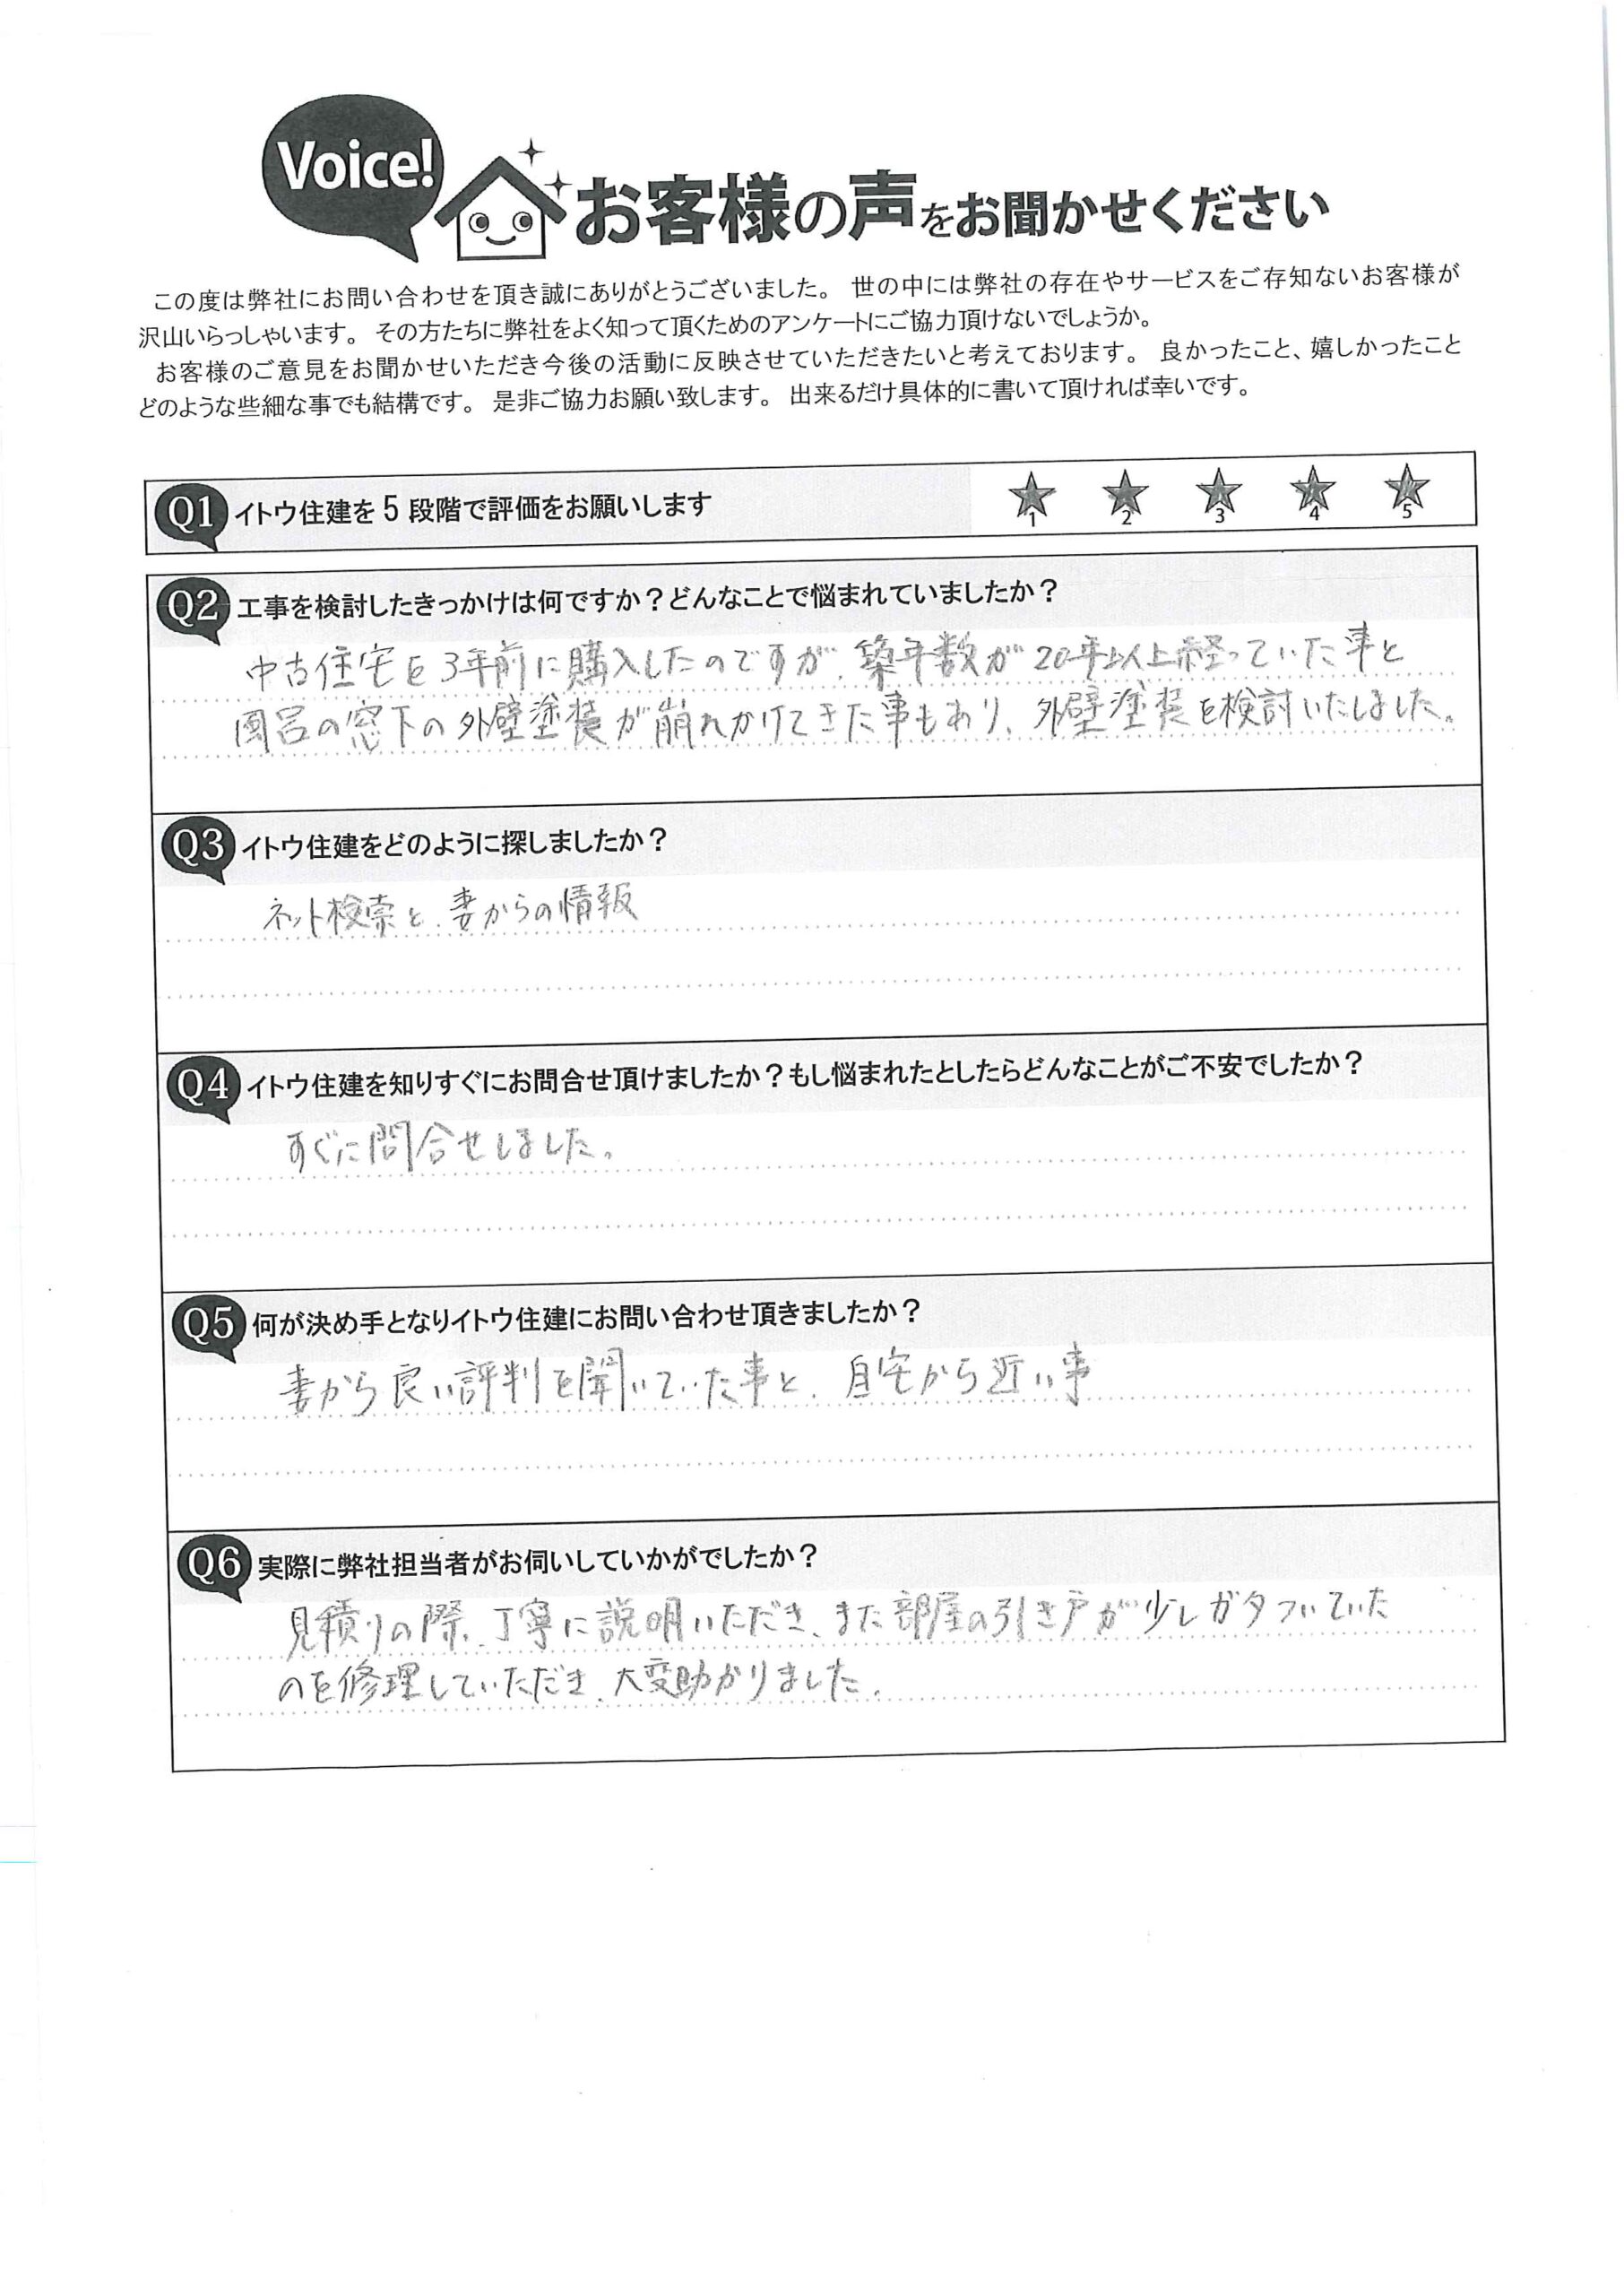 Voice!
お客様の声をお聞かせください
この度は弊社にお問い合わせを頂き誠にありがとうございました。 世の中には弊社の存在やサービスをご存知ないお客様が
沢山いらっしゃいます。 その方たちに弊社をよく知って頂くためのアンケートにご協力頂けないでしょうか。
お客様のご意見をお聞かせいただき今後の活動に反映させていただきたいと考えております。 良かったこと、嬉しかったこと
どのような些細な事でも結構です。 是非ご協力お願い致します。 出来るだけ具体的に書いて頂ければ幸いです。
Q1 イトウ住建を5段階で評価をお願いします
1 2 3 4 5
Q2 工事を検討したきっかけは何ですか？どんなことで悩まれていましたか？
中古住宅を3年前に購入したのですが、築年数が20年以上経っていた事と
風呂の窓下の外壁塗装が崩れかけてきた事もあり、外壁塗装を検討いたしました。
Q3 イトウ住建をどのように探しましたか？
ネット検索と、妻からの情報
Q4 イトウ住建を知りすぐにお問合せ頂けましたか？もし悩まれたとしたらどんなことがご不安でしたか？
すぐに問合せしました。
Q5 何が決め手となりイトウ住建にお問い合わせ頂きましたか？
妻から良い評判を聞いていた事と、自宅から近い事
Q6 実際に弊社担当者がお伺いしていかがでしたか？
見積りの際、丁寧に説明いただき、また部屋の引き戸が少しガタついていた
のを修理していただき、大変助かりました。